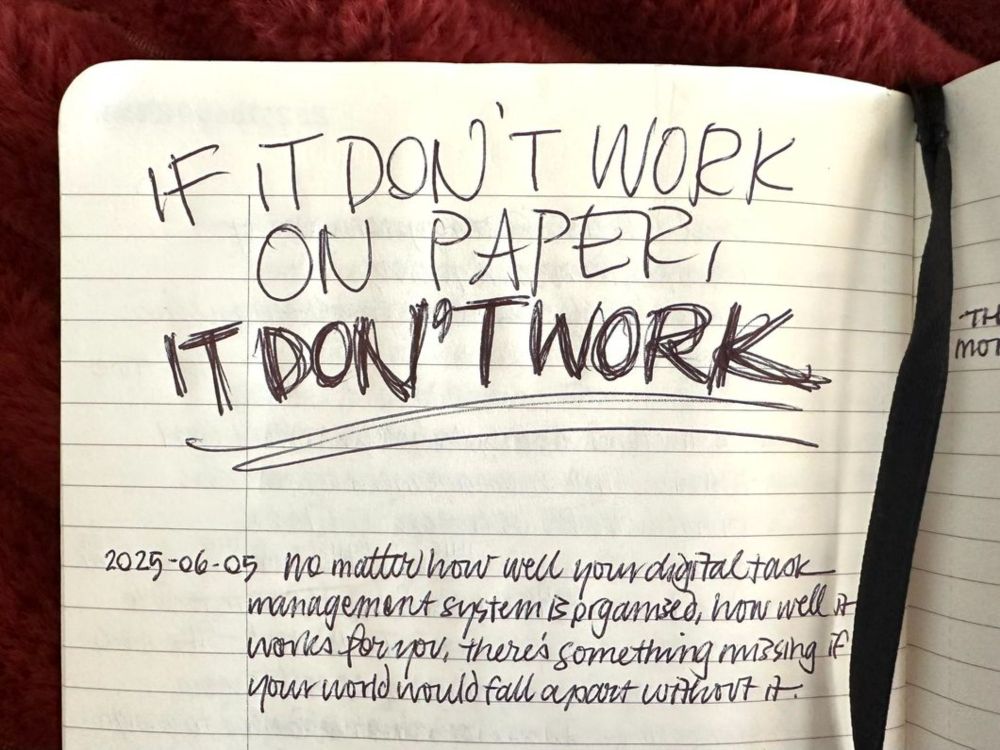 IF IT DON'T WORK
ON PAPER,
IT DON'T WORK
2025-06-05 No matter how well your digital task
management system is organised, how well it
works for you, there's something missing if
your world would fall apart without it.
TH
MOT